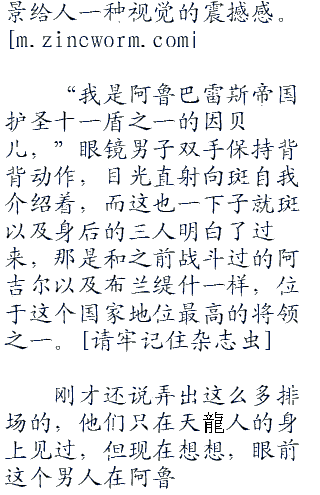 景给人一种视觉的震撼感。
[m.zincworm.com]
“我是阿鲁巴雷斯帝国
护圣十一盾之一的因贝
儿，”眼镜男子双手保持背
背动作，目光直射向斑自我
介绍着，而这也一下子就斑
以及身后的三人明白了过
来，那是和之前战斗过的阿
吉尔以及布兰缇什一样，位
于这个国家地位最高的将领
之一。[请牢记住杂志虫]
刚才还说弄出这么多排
场的，他们只在天龍人的身
上见过，但现在想想，眼前
这个男人在阿鲁